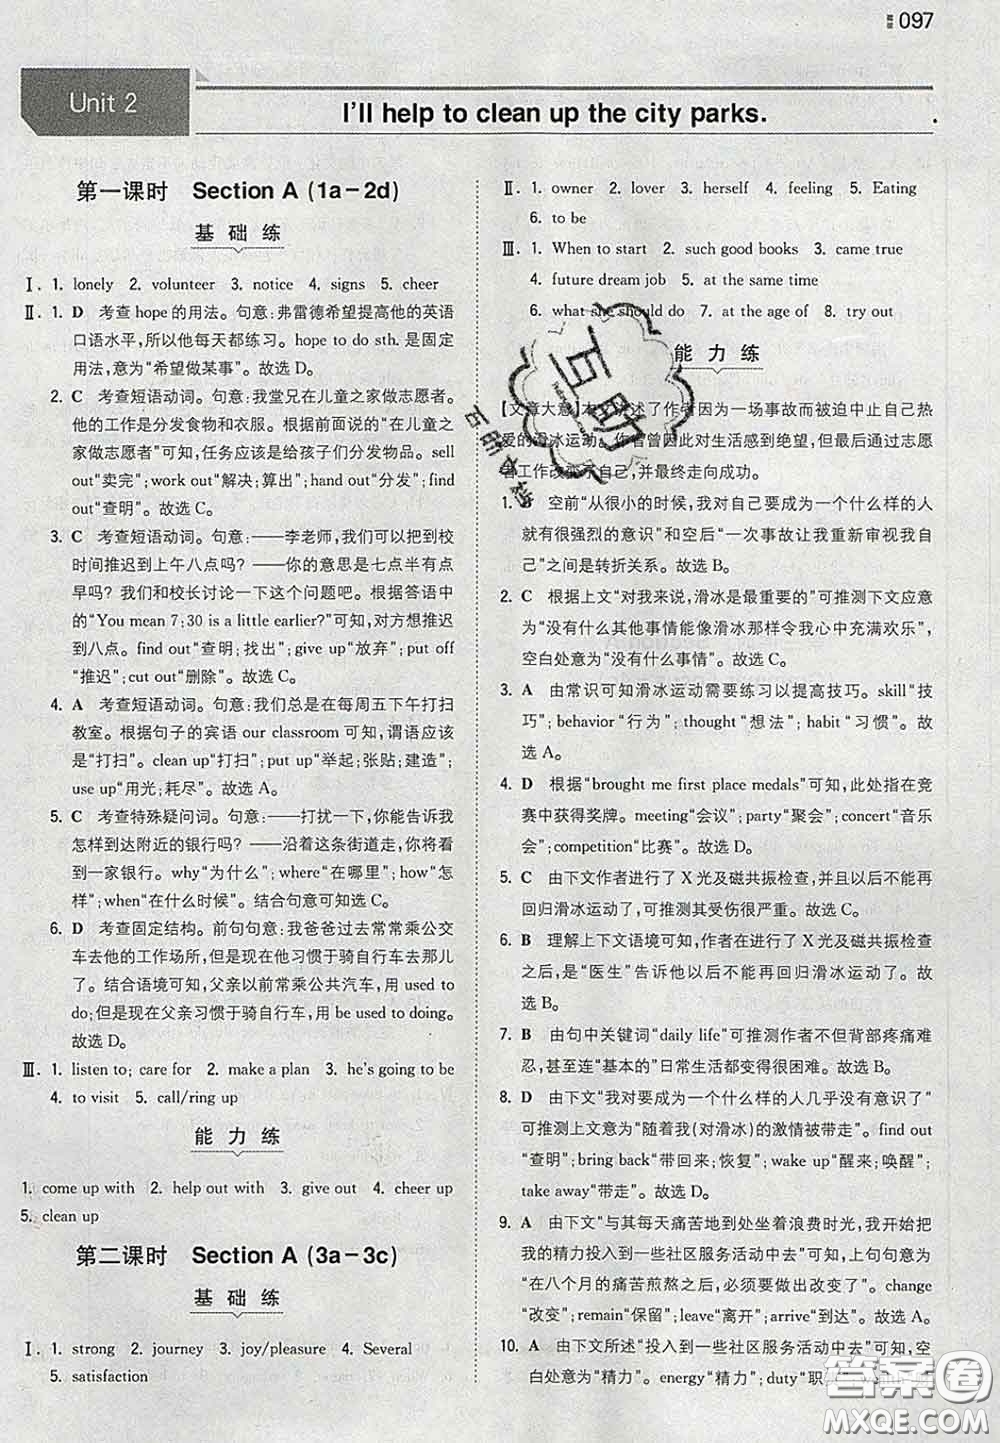 097
Unit 2
I'll help to clean up the city parks.
第一课时 Section A (1a-2d)
基础练
Ⅰ. 1. lonely 2. volunteer 3. notice 4. signs 5. cheer
Ⅱ. 1. D 考查 hope 的用法。句意:弗雷德希望提高他的英语
口语水平,所以他每天都练习。hope to do sth. 是固定
用法,意为“希望做某事”。故选 D。
2. C 考查短语动词。句意:我堂兄在儿童之家做志愿者。
他的工作是分发食物和衣服。根据前面说的“在儿童之
家做志愿者”可知,任务应该是给孩子们分发物品。sell
out“卖完”;work out“解决;算出”;hand out“分发”;find
out“查明”。故选 C。
3. C 考查短语动词。句意:——李老师,我们可以把到校
时间推迟到上午八点吗?——你的意思是七点半有点
早吗?我们和校长讨论一下这个问题吧。根据答语中
的“You mean 7:30 is a little earlier?”可知,对方想推迟
到八点。find out“查明;找出”;give up“放弃”;put off
“推迟”;cut out“删除”。故选 C。
4. A 考查短语动词。句意:我们总是在每周五下午打扫
教室。根据句子的宾语 our classroom 可知,谓语应该
是“打扫”。clean up“打扫”;put up“举起;张贴;建造”;
use up“用光;耗尽”。故选 A。
5. C 考查特殊疑问词。句意:——打扰一下,你能告诉我
怎样到达附近的银行吗?——沿着这条街道走,你将看
到一家银行。why“为什么”;where“在哪里”;how“怎
样”;when“在什么时候”。结合句意可知选 C。
6. D 考查固定结构。前句句意:我爸爸过去常常乘公交
车去他的工作场所,但是现在他习惯于骑自行车去那儿
了。结合语境可知,父亲以前常乘公共汽车,用 used to
do;但是现在父亲习惯于骑自行车,用 be used to doing。
故选 D。
Ⅲ. 1. listen to; care for 2. make a plan 3. he's going to be
4. to visit 5. call/ring up
能力练
1. come up with 2. help out with 3. give out 4. cheer up
5. clean up
第二课时 Section A (3a-3c)
基础练
Ⅰ. 1. strong 2. journey 3. joy/pleasure 4. Several
5. satisfaction
Ⅱ. 1. owner 2. lover 3. herself 4. feeling 5. Eating
6. to be
Ⅲ. 1. When to start 2. such good books 3. came true
4. future dream job 5. at the same time
6. what she should do 7. at the age of 8. try out
能力练
【文章大意】本文讲述了作者因为一场事故而被迫中止自己热
爱的滑冰运动。作者曾因此对生活感到绝望,但最后通过志愿
者工作改变了自己,并最终走向成功。
1. B 空前“从很小的时候,我对自己要成为一个什么样的人
就有很强烈的意识”和空后“一次事故让我重新审视我自
己”之间是转折关系。故选 B。
2. C 根据上文“对我来说,滑冰是最重要的”可推测下文应意
为“没有什么其他事情能像滑冰那样令我心中充满欢乐”,
空白处意为“没有什么事情”。故选 C。
3. A 由常识可知滑冰运动需要练习以提高技巧。skill“技
巧”;behavior“行为”;thought“想法”;habit“习惯”。故
选 A。
4. D 根据“brought me first place medals”可知,此处指在竞
赛中获得奖牌。meeting“会议”;party“聚会”;concert“音乐
会”;competition“比赛”。故选 D。
5. C 由下文作者进行了 X 光及磁共振检查,并且以后不能再
回归滑冰运动了,可推测其受伤很严重。故选 C。
6. B 理解上下文语境可知,作者在进行了 X 光及磁共振检查
之后,是“医生”告诉他以后不能再回归滑冰运动了。故
选 B。
7. B 由句中关键词“daily life”可推测作者不但背部疼痛难
忍,甚至连“基本的”日常生活都大受影响。故选 B。
8. D 由下文“我对要成为一个什么样的人几乎没有意识了”
可推测上文意为“随着我(对滑冰)的激情被带走”。find out
“查明”;bring back“带回来;恢复”;wake up“醒来;唤醒”;
take away“带走”。故选 D。
9. A 由下文“与其每天痛苦地到处坐着浪费时光,我开始把
我的精力投入到一些社区服务活动中去”可知,上句句意为
“在八个月的痛苦煎熬之后,必须要做出改变了”。change
“改变”;remain“保留”;leave“离开”;arrive“到达”。故选 A。
10. A 由下文所述“投入到一些社区服务活动中去”可知,空
白处意为“精力”。energy“精力”;duty“职
互助
答案圈
MXQE.COM